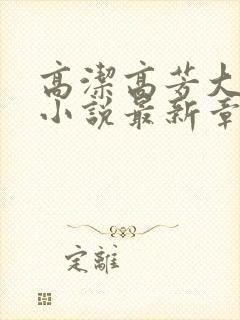 高潔高芳大
小說最新章
定離